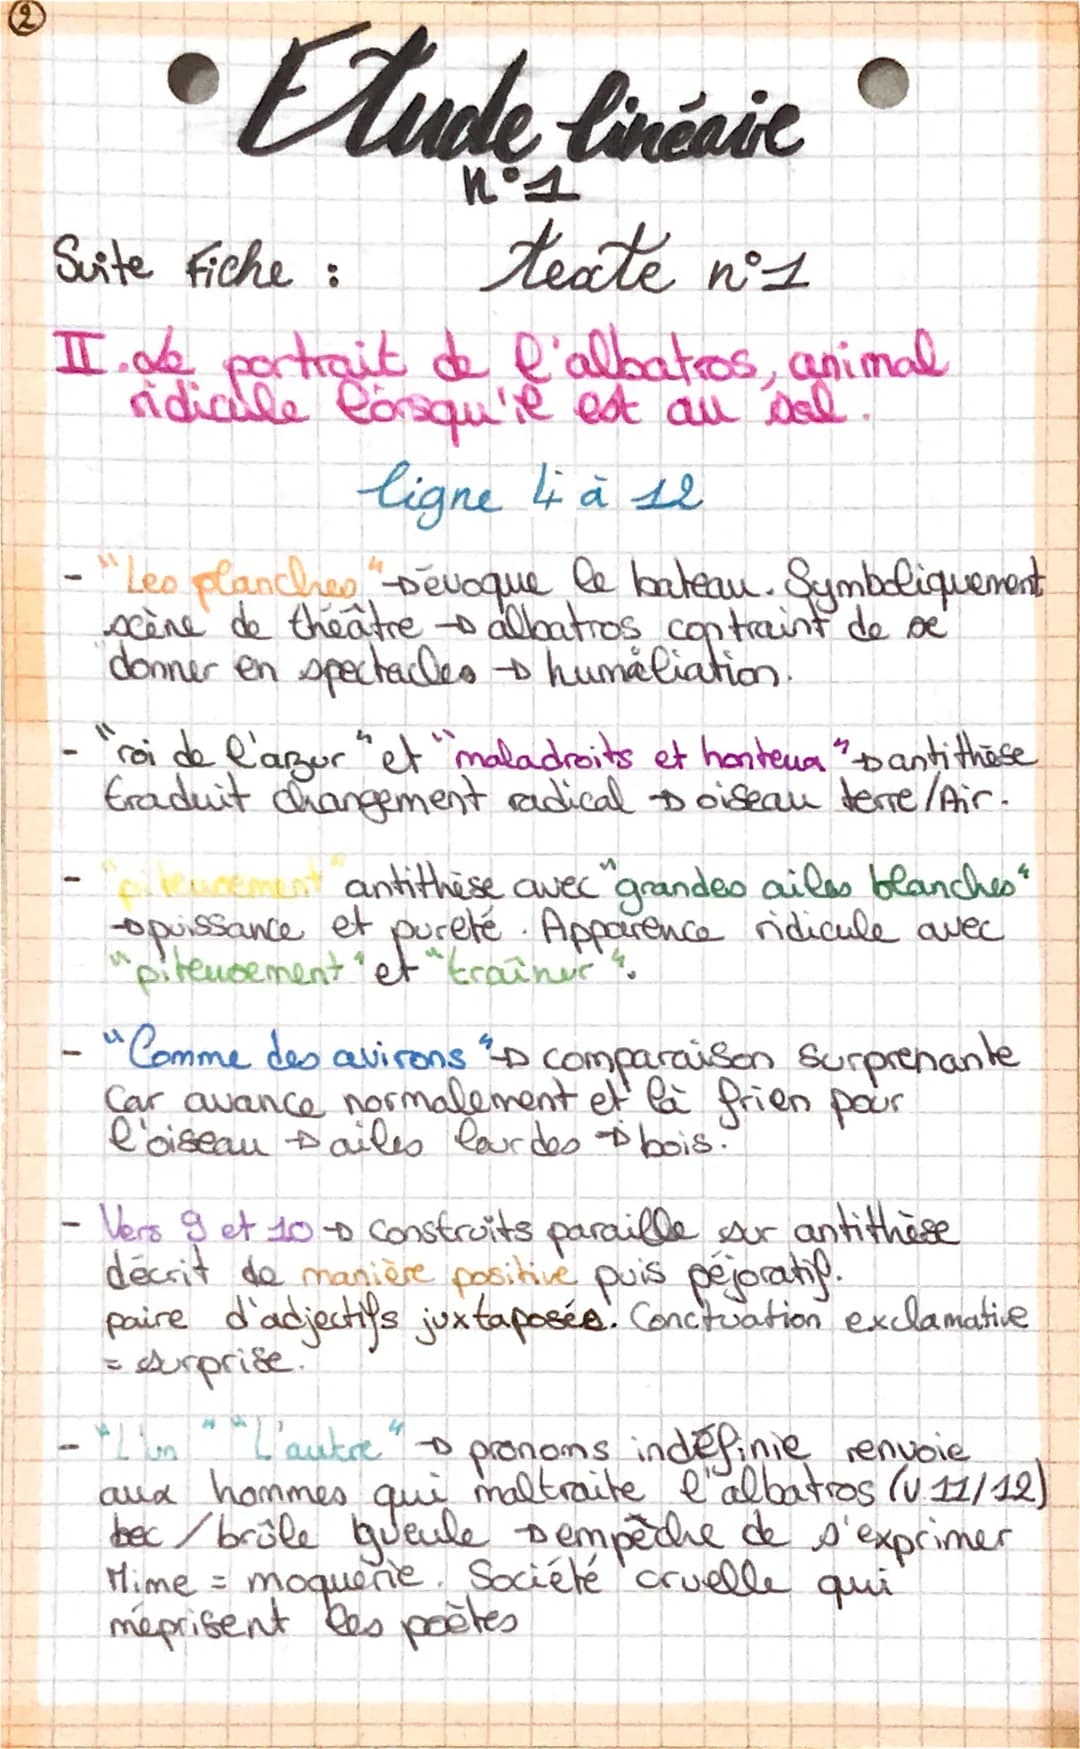 2
Etude linéaire
n°1
Suite Fiche : texte n°1
II. Le portrait de l'albatros, animal
ridicule lorsqu'il est au sol.
ligne 4 à 12
- "Les planches" → évoque le bateau. Symboliquement
scène de théâtre → albatros contraint de se
donner en spectacles → humiliation.
- "roi de l'azur" et "maladroits et honteux" → antithèse
traduit changement radical → oiseau terre/Air.
- "piteusement" antithèse avec "grandes ailes blanches"
→ puissance et pureté. Apparence ridicule avec
"piteusement" et "traîner".
- "Comme des avirons" → comparaison surprenante
car avance normalement et là frien pour
l'oiseau → ailes lourdes → bois.
- Vers 9 et 10 → construits paraille sur antithèse
décrit de manière positive puis péjoratif.
paire d'adjectifs juxtaposée. Conctuation exclamative
= surprise.
- "L'un" "L'autre" → pronoms indéfinie renvoie
aux hommes qui maltraite l'albatros (v.11/12)
bec / brûle gueule → empêche de s'exprimer
Mime = moquerie. Société cruelle qui
méprisent les poètes